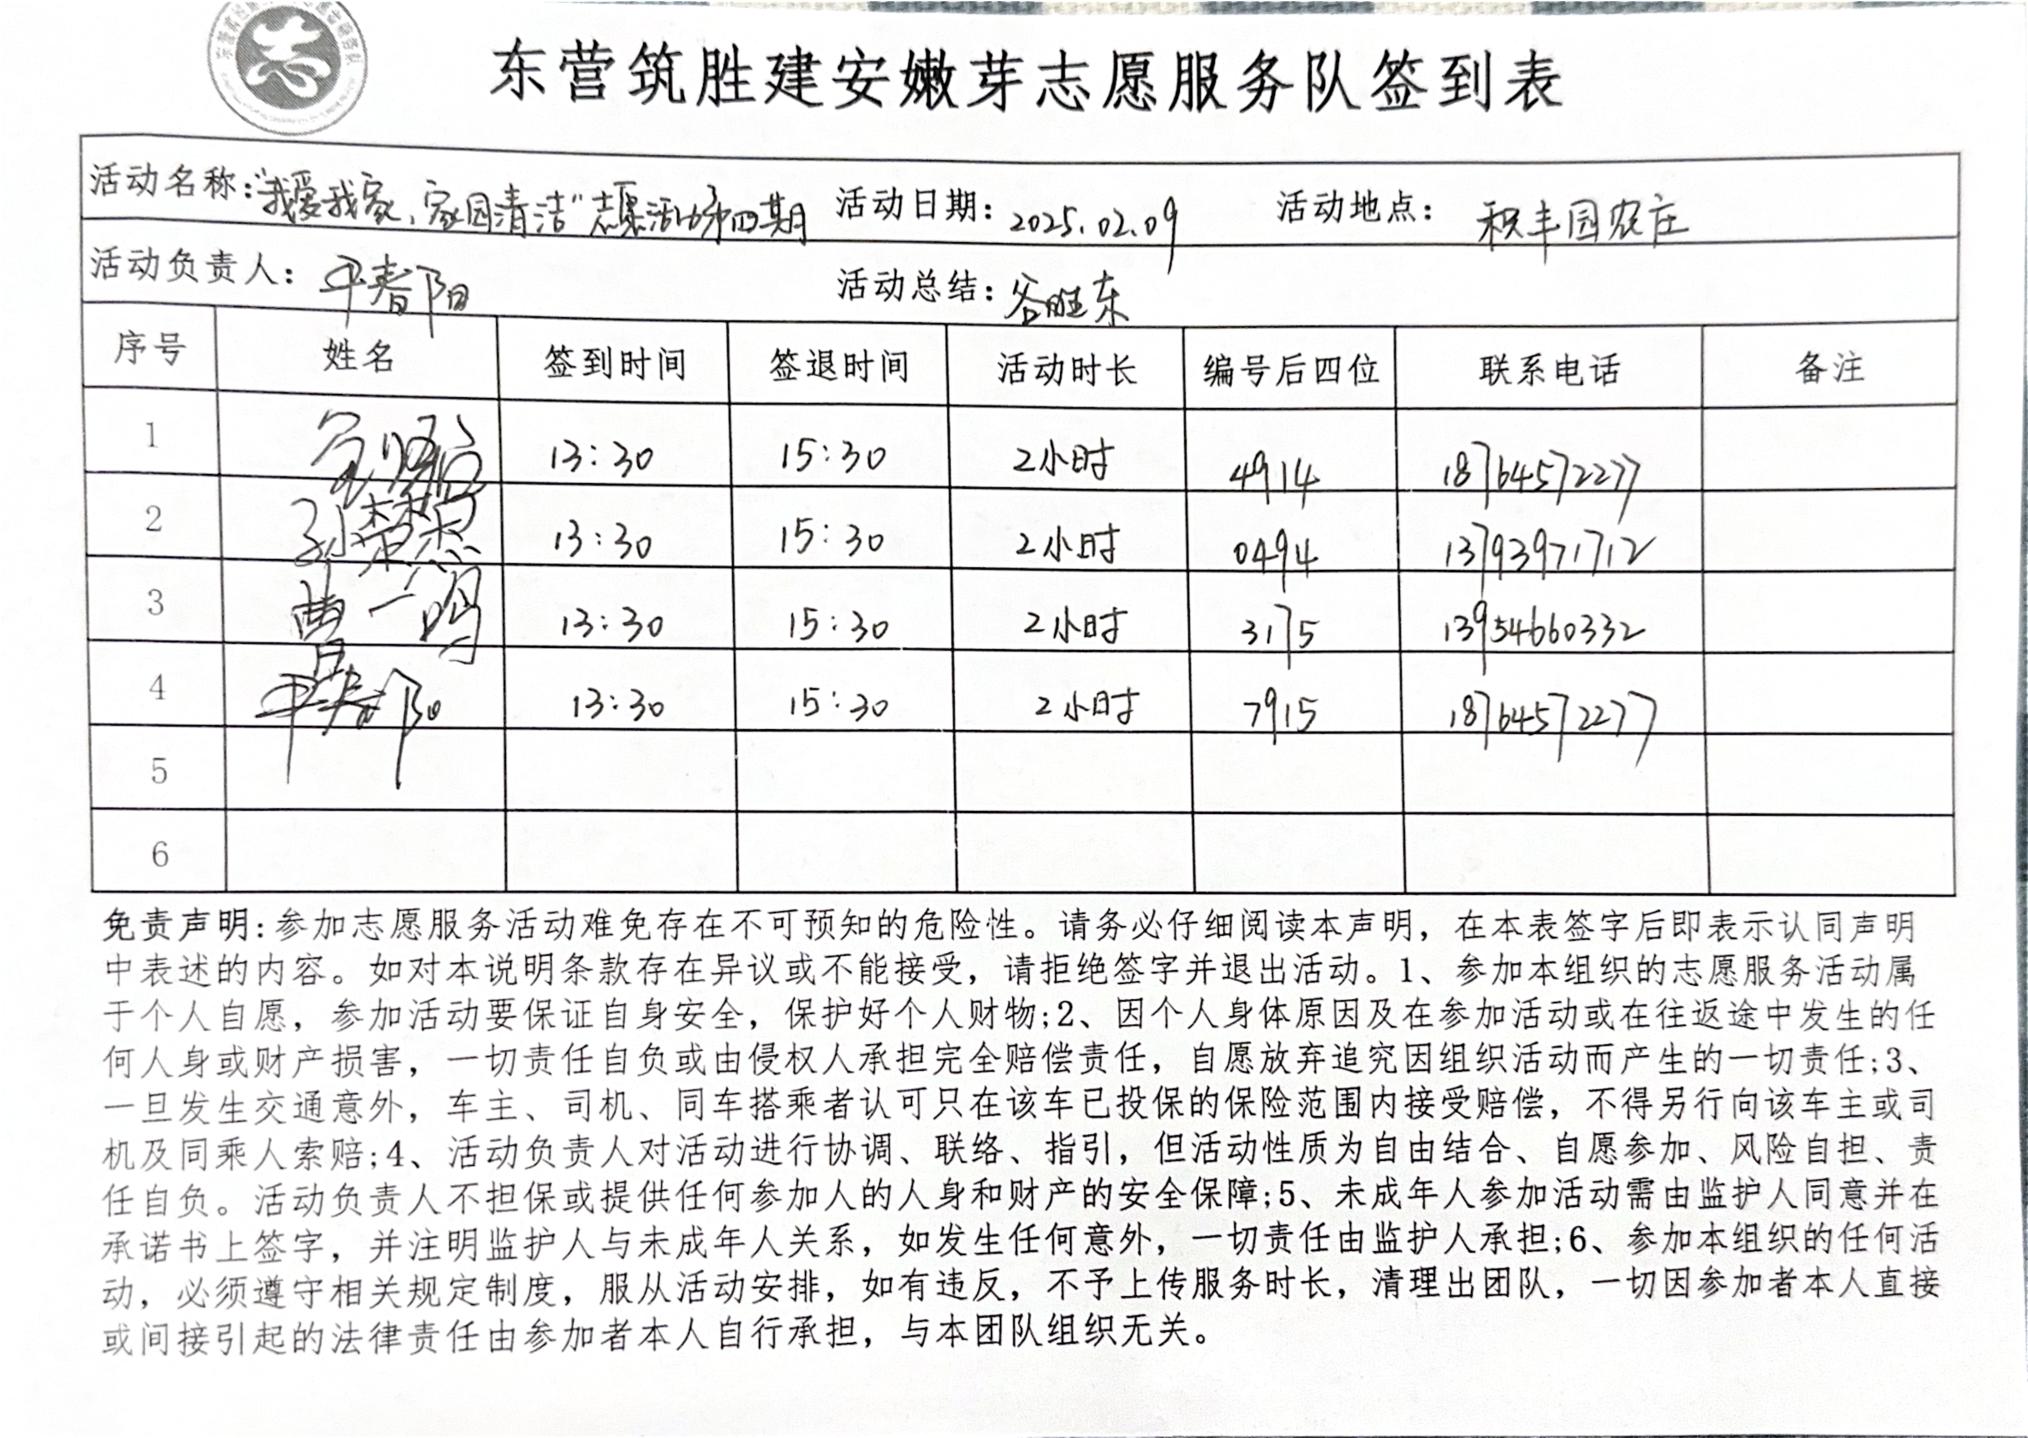 东营筑胜建安嫩芽志愿服务队签到表
活动名称:"我爱我家、家园清洁"志愿活动第四期 活动日期: 2025.02.09 活动地点: 积丰园农庄
活动负责人: 平春阳 活动总结: 谷胜东
序号 姓名 签到时间 签退时间 活动时长 编号后四位 联系电话 备注
1 13:30 15:30 2小时 4914 18764572277
2 孙荣杰 13:30 15:30 2小时 0494 13793971712
3 曹一鸣 13:30 15:30 2小时 3175 13954660332
4 平春阳 13:30 15:30 2小时 7915 18764572277
5
6
免责声明:参加志愿服务活动难免存在不可预知的危险性。请务必仔细阅读本声明，在本表签字后即表示认同声明
中表述的内容。如对本说明条款存在异议或不能接受，请拒绝签字并退出活动。1、参加本组织的志愿服务活动属
于个人自愿，参加活动要保证自身安全，保护好个人财物;2、因个人身体原因及在参加活动或在往返途中发生的任
何人身或财产损害，一切责任自负或由侵权人承担完全赔偿责任，自愿放弃追究因组织活动而产生的一切责任;3、
一旦发生交通意外，车主、司机、同车搭乘者认可只在该车已投保的保险范围内接受赔偿，不得另行向该车主或司
机及同乘人索赔;4、活动负责人对活动进行协调、联络、指引，但活动性质为自由结合、自愿参加、风险自担、责
任自负。活动负责人不担保或提供任何参加人的人身和财产的安全保障;5、未成年人参加活动需由监护人同意并在
承诺书上签字，并注明监护人与未成年人关系，如发生任何意外，一切责任由监护人承担;6、参加本组织的任何活
动，必须遵守相关规定制度，服从活动安排，如有违反，不予上传服务时长，清理出团队，一切因参加者本人直接
或间接引起的法律责任由参加者本人自行承担，与本团队组织无关。